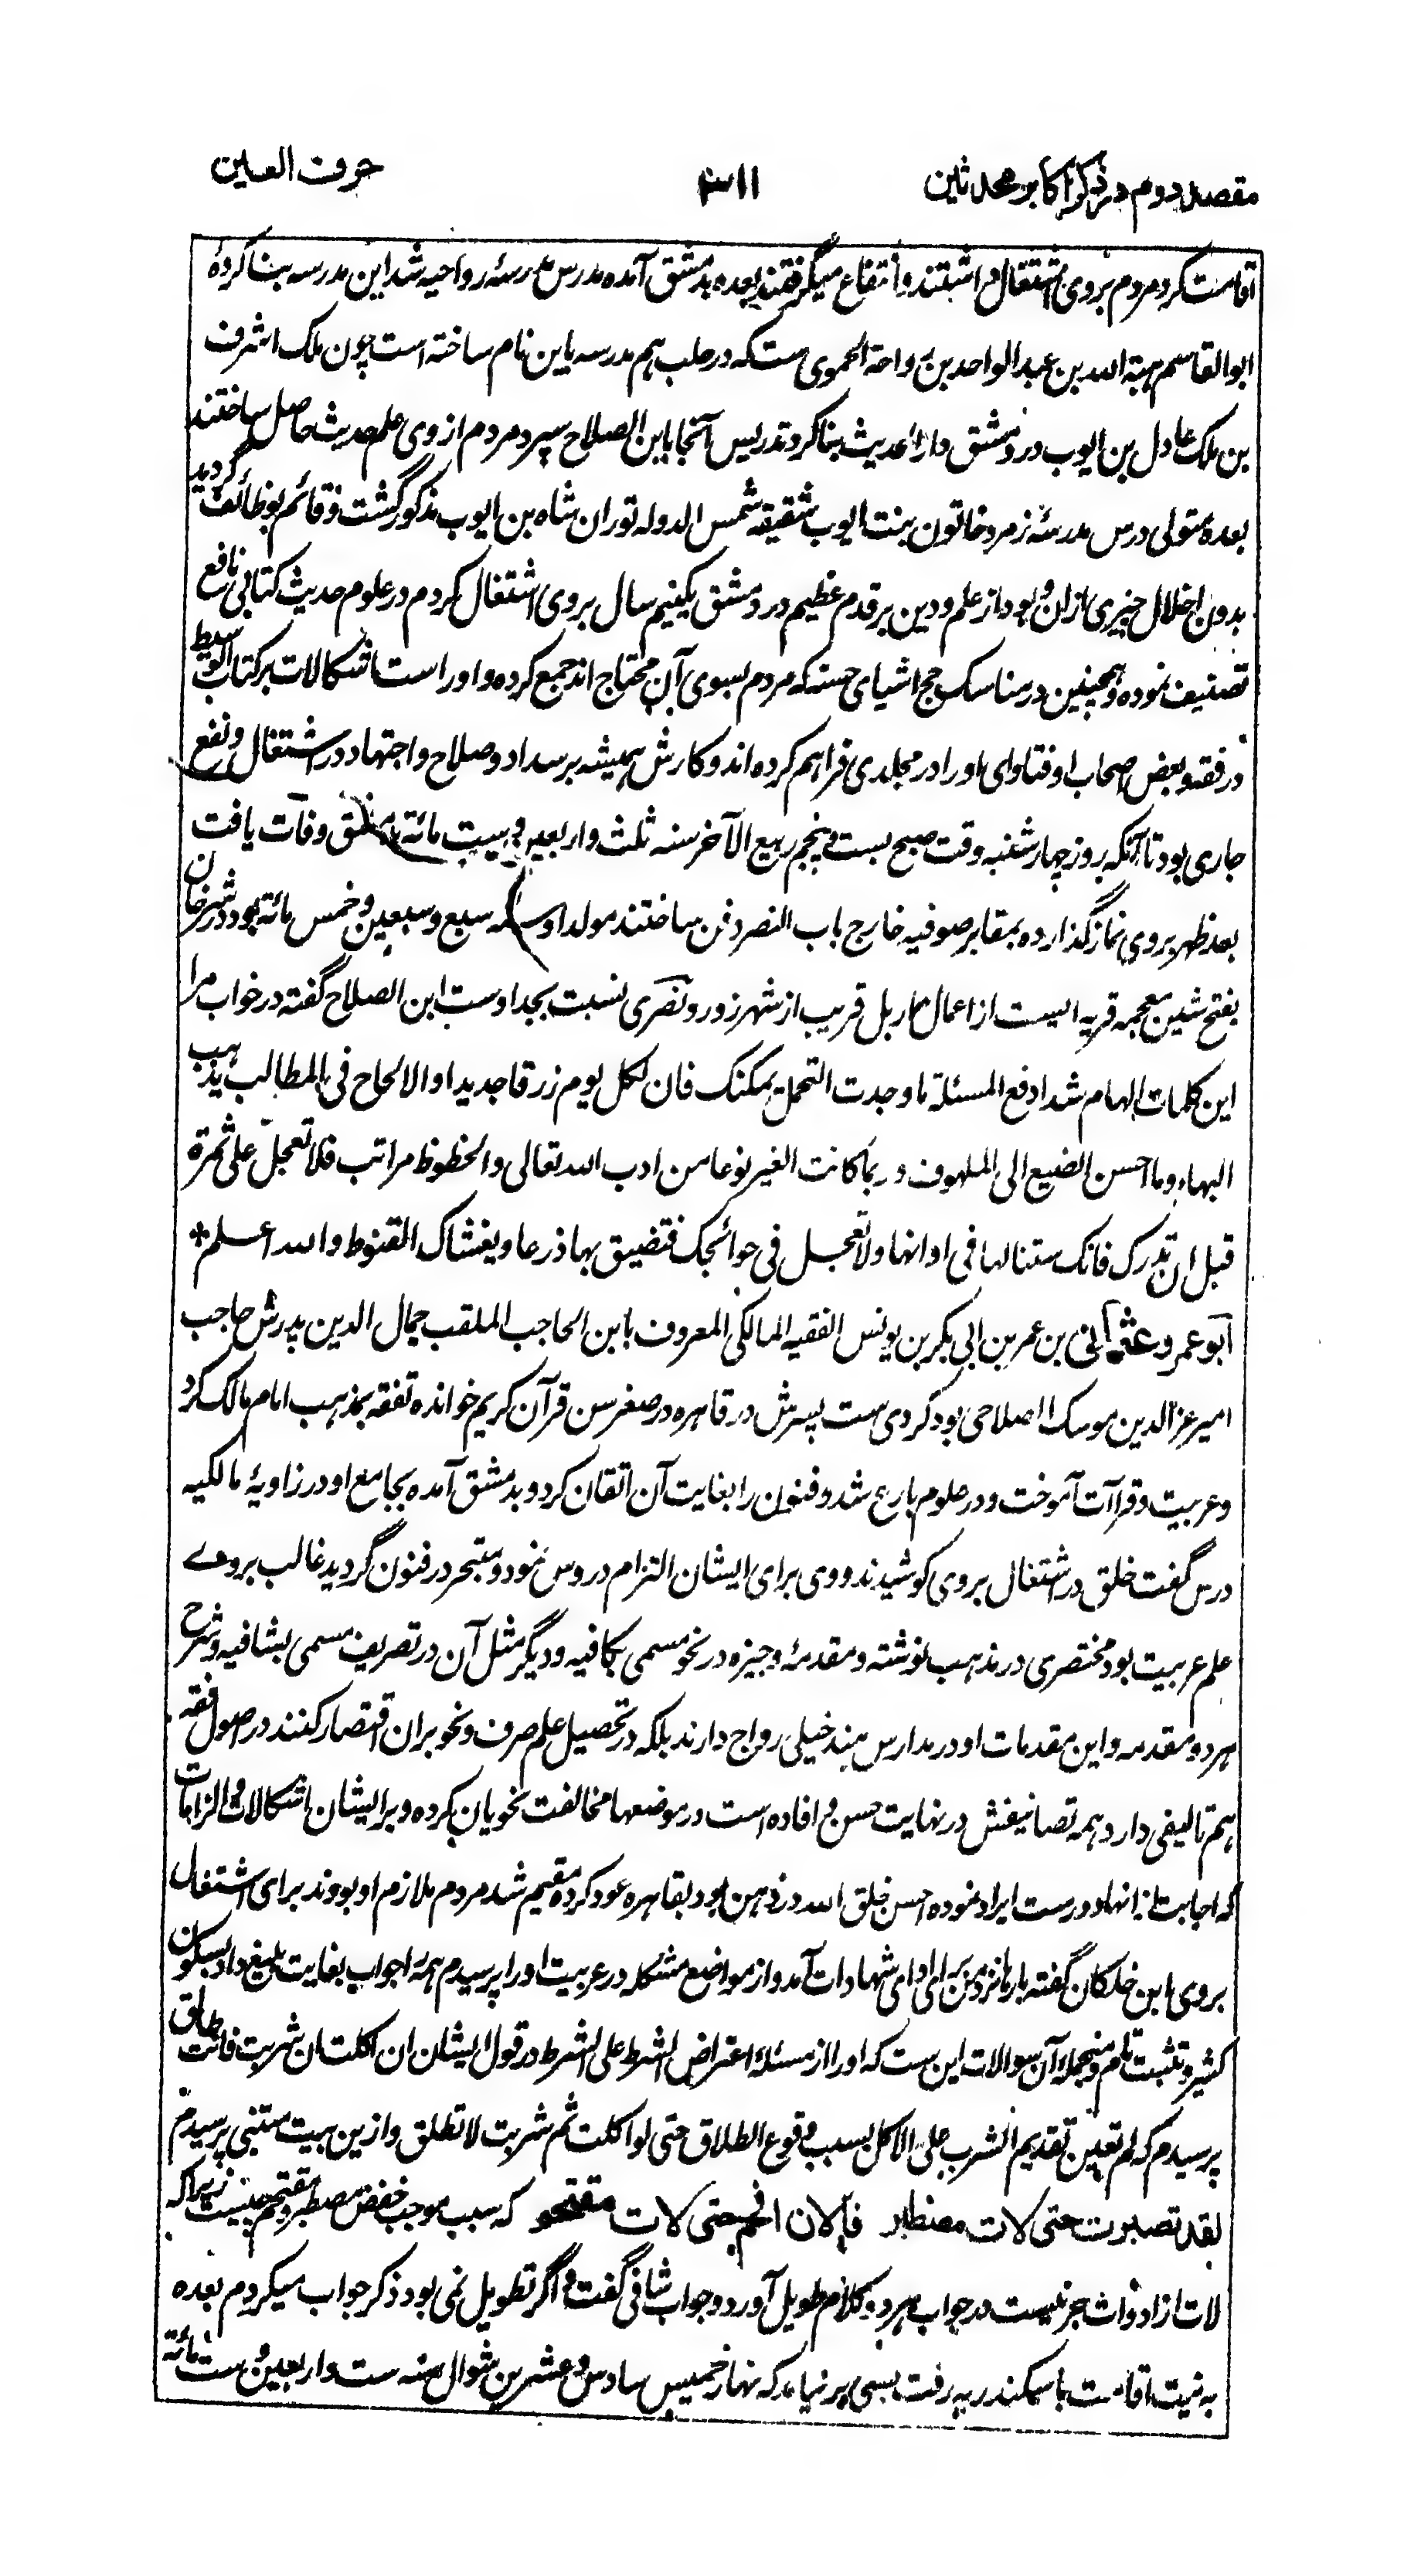 مقصد دوم در ذکر اکابر محدثین ۳۱۱ حرف العین
اقامت کرد مردم بروی اشتغال داشتند و انتفاع میگرفتند بعده بدمشق آمده مدرس مدرسهٔ رواحیه شد این مدرسه بنا کردهٔ
ابو القاسم هبة الله بن عبد الواحد بن رواحة الحموی ست که در حلب هم مدرسه باین نام ساخته است چون ملک اشرف
بن ملک عادل بن ایوب در دمشق دار الحدیث بنا کرد تدریس آنجا باین الصلاح سپرد مردم از وی علم حدیث حاصل ساختند
بعده متولی درس مدرسهٔ زمرد خاتون بنت ایوب شقیقه شمس الدوله توران شاه بن ایوب مذکور گشت و قائم بوظائف گردید
بدون اخلال چیزی ازان و بود از علم و دین بر قدم عظیم در دمشق یکنیم سال بروی اشتغال کردم در علوم حدیث کتابی نافع
تصنیف نموده و همچنین در مناسک حج اشیای حسنه که مردم بسوی آن محتاج اند جمع کرده و او راست اشکالات بر کتاب الوسیط
در فقه و بعض اصحاب او فتاوای او را در مجلدی فراهم کرده اند و کارش همیشه بر سداد و صلاح و اجتهاد در اشتغال و نفع
جاری بود تا آنکه بروز چهارشنبه وقت صبح بست و پنجم ربیع الآخر سنه ثلث و اربعین و ست مائة بدمشق وفات یافت
بعد ظهر بروی نماز گذارده بمقابر صوفیه خارج باب النصر دفن ساختند مولد او سنه سبع و سبعین و خمس مائة بود در شرخان
بفتح شین معجمه قریه ایست از اعمال اربل قریب از شهرزور و نصری نسبت بجد اوست ابن الصلاح گفته در خواب مرا
این کلمات الهام شد ادفع المسئلة ما وجدت التحمل یمکنک فان لکل یوم رزقا جدیدا و الالحاح فی المطالب یذهب
البهاء و ما احسن الصنیع الی الملهوف و ربما کانت الغیر نوعا من ادب الله تعالی و الحظوظ مراتب فلا تعجل علی ثمرة
قبل ان تدرک فانک ستنالها فی اوانها و لا تعجل فی حوائجک فتضیق بها ذرعا و یغشاک القنوط و الله اعلم *
ابو عمرو عثمان بن عمر بن ابی بکر بن یونس الفقیه المالکی المعروف بابن الحاجب الملقب جمال الدین پدرش حاجب
امیر عز الدین موسک الصلاحی بود کردی ست پسرش در قاهره در صغر سن قرآن کریم خوانده تفقه بمذهب امام مالک کرد
و عربیت و قراآت آموخت و در علوم بارع شد و فنون را بغایت آن اتقان کرد و بدمشق آمده بجامع او در زاویهٔ مالکیه
درس گفت خلق در اشتغال بروی کوشیدند و وی برای ایشان التزام دروس نمود و متبحر در فنون گردید غالب بروے
علم عربیت بود مختصری در مذهب نوشته و مقدمهٔ وجیزه در نحو مسمی بکافیه و دیگر مثل آن در تصریف مسمی بشافیه و شرح
هر دو مقدمه و این مقدمات او در مدارس هند خیلی رواج دارند بلکه در تحصیل علم صرف و نحو بران اقتصار کنند در اصول فقه
هم تالیفی دارد و همه تصانیفش در نهایت حسن و افاده است در موضعها مخالفت نحویان کرده و بر ایشان اشکالات و الزامات
که اجابت از انها دورست ایراد نموده احسن خلق الله در ذهن بود بقاهره عود کرده مقیم شد مردم ملازم او بودند برای اشتغال
بروی ابن خلکان گفته بارها نزد من برای ادای شهادات آمد و از مواضع مشکله در عربیت او را پرسیدم همه را جواب بغایت بلیغ داد بسکون
کثیر و تثبت تام و منجملهٔ آن سوالات این ست که او را از مسئله اعتراض الشرط علی الشرط در قول ایشان ان اکلت ان شربت فانت طالق
پرسیدم که لم تعین تقدیم الشرب علی الاکل بسبب وقوع الطلاق حتی لو اکلت ثم شربت لا تطلق و ازین بیت متنبی پرسیدم
لقد تصبرت حتی لات مصطبر فالآن اقحم حتی لات مقتحم که سبب موجب خفض مصطبر و مقتحم چیست زیرا که
لات از ادوات جر نیست در جواب هر دو کلام طویل آورد و جواب شافی گفت و اگر تطویل نمی بود ذکر جواب میکردم بعده
به نیت اقامت باسکندریه رفت بسی بر نیامد که نهار خمیس سادس و عشرین شوال سنه ست و اربعین و ست مائة